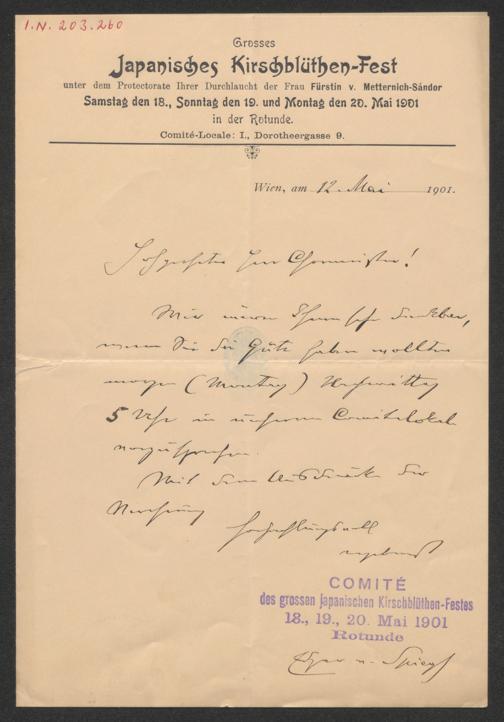 I.N. 203.260
Grosses
Japanisches Kirschblüthen-Fest
unter dem Protectorate Ihrer Durchlaucht der Frau Fürstin v. Metternich-Sándor
Samstag den 18., Sonntag den 19. und Montag den 20. Mai 1901
in der Rotunde.
Comité-Locale: I., Dorotheergasse 9.
Wien, am 12. Mai 1901.
Herr Chormeister!
Wir wären Ihnen sehr dankbar,
wenn Sie die Güte haben wollten
morgen (Montag) Nachmittag
5 Uhr in unserem Comitélokal
vorzusprechen.
Mit dem Ausdrucke der
hochachtungsvoll
ergebenst
COMITÉ
des grossen Japanischen Kirschblüthen-Festes
18., 19., 20. Mai 1901
Rotunde